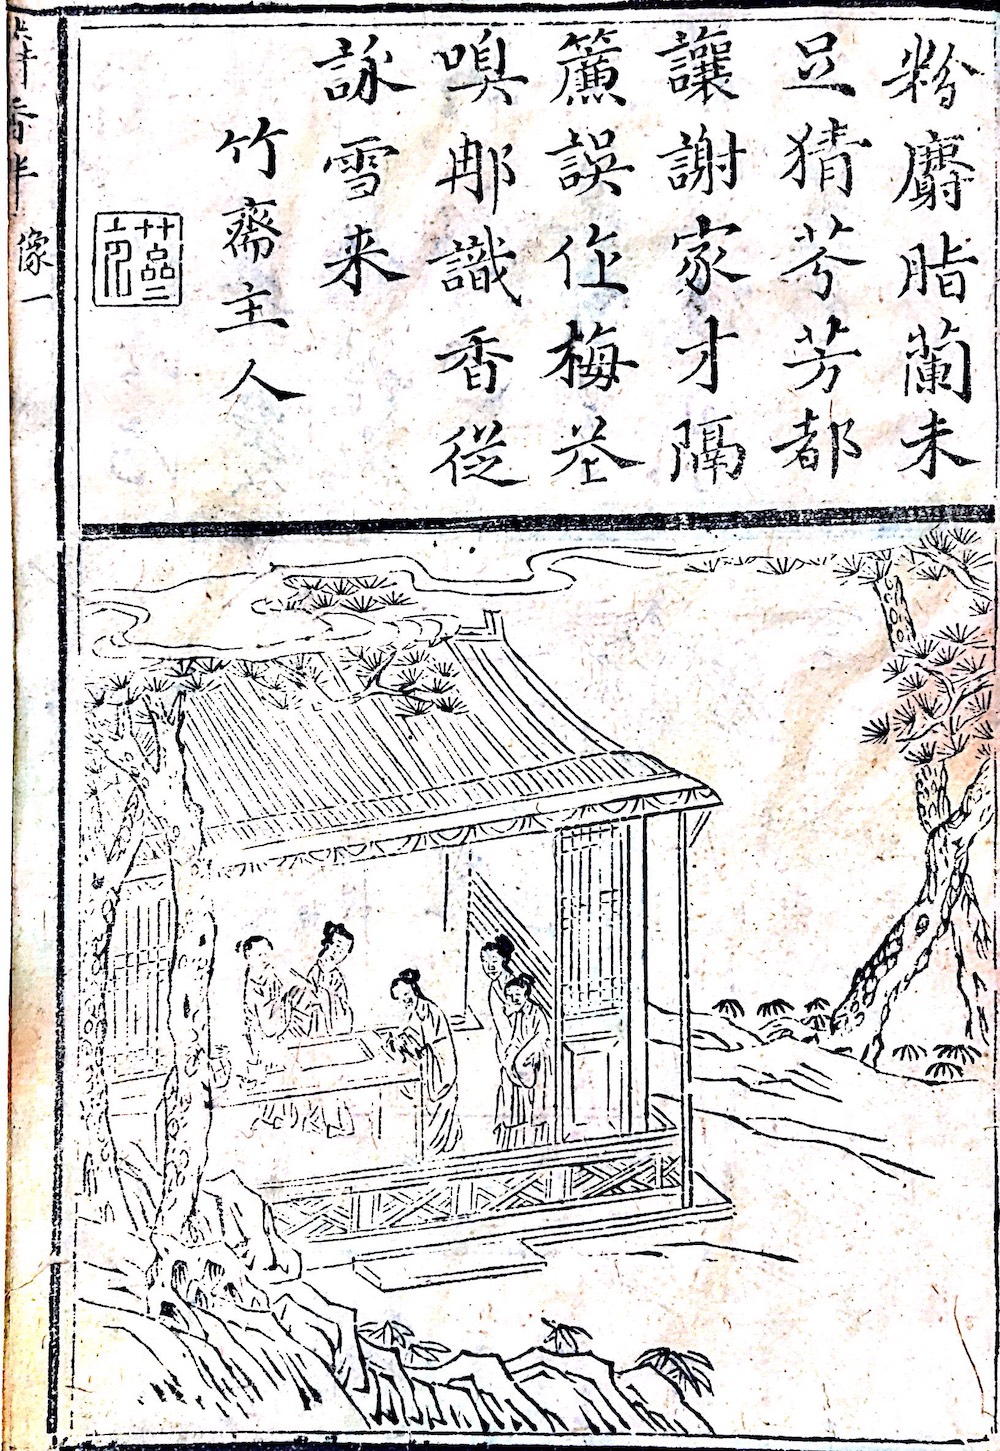 粉麝脂蘭未
足猜芬芳都
讓謝家才隔
簾誤作梅花
嗅那識香從
詠雪来
竹齋主人
像一